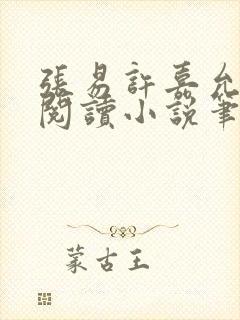 張易許嘉允
閱讀小說筆
蒙古王